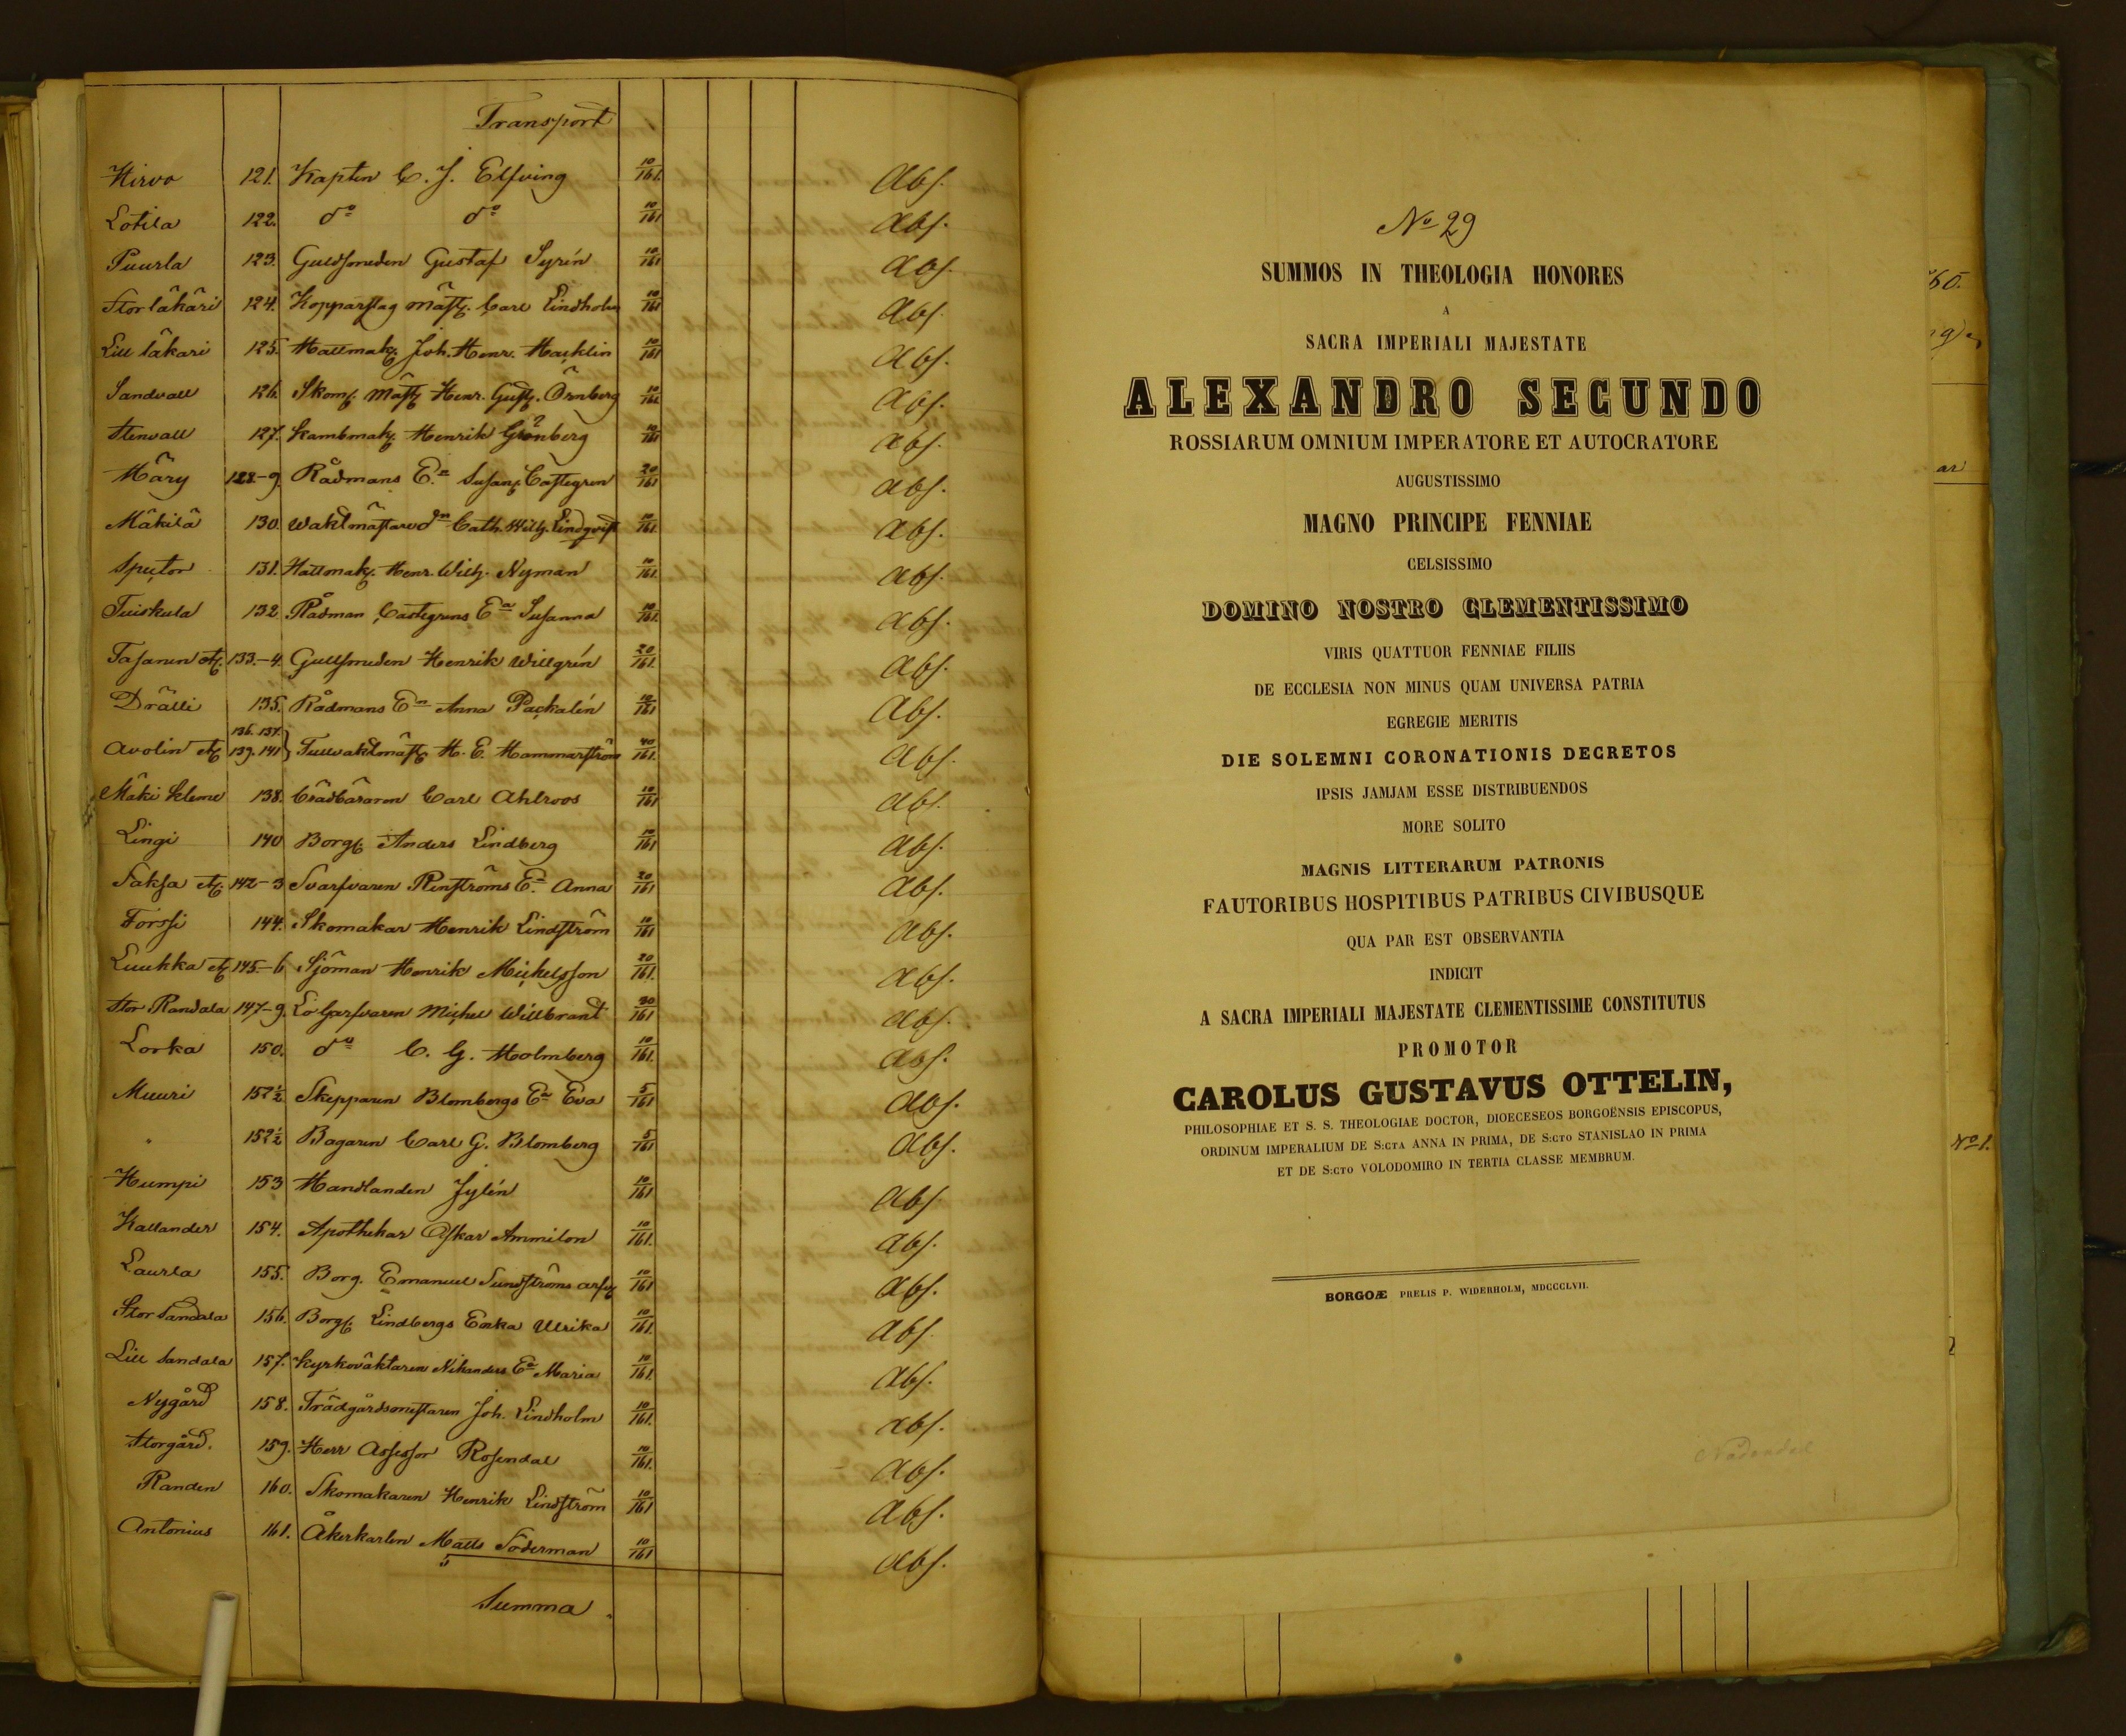 Transport
Hirvo 121. Kapten C. J. Elfving 10/161. Abs.
Lotila 122. do do 10/161 Abs.
Puurla 123. Guldsmeden Gustaf Syrén 10/161 Abs.
Storläkäri 124. Kopparslag mäst. Carl Lindholm 10/161 Abs.
Lill läkari 125. Hattmak. Joh. Henr. Hacklin 10/161 Abs.
Sandvall 126. Skom. Mäst. Henr. Gust. Örnberg 10/161 Abs.
Stenvall 127. Kambmak. Henrik Grönberg 10/161 Abs.
Märy 128-9. Rådmans En Susan. Castegren 20/161 Abs.
Mäkilä 130. Waktmästaredn Cath. Wilh. Lindqvist 10/161. Abs.
Spector 131. Hattmak. Henr. Wilh. Nyman 10/161. Abs.
Tuiskula 132 Rådman Castegrens Ea Susanna 10/161. Abs.
Tasanen 133.-4. Gullsmeden Henrik Willgrén 20/161. Abs.
Drälli 135. Rådmans En Anna Packalén 10/161 Abs.
136. 137.
Avolin 139. 141 Tullvaktmäst. H. E. Hammarström 40/161. Abs.
Mäki Kleme 138. Carl Ahlroos 10/161 Abs.
Lingi 140 Borg. Anders Lindberg 10/161 Abs.
Saksa 142-3 Svarfvaren Renströms Ea Anna 20/161 Abs.
Forssi 144. Skomakar Henrik Lindström 10/161 Abs.
Luukka 145.-6 Sjöman Henrik Michelsson 20/161. Abs.
Stor Randala 147-9. Lo Garfvaren Michel Willbrant 30/161 Abs.
Lorka 150. do C. G. Holmberg 10/161. Abs.
Muuri 152½ Skepparen Blombergs Ea Eva 5/161 Abs.
" 152½ Bagaren Carl G. Blomberg 5/161 Abs.
Humpi 153 Handlanden Jylén 10/161 Abs.
Kallander 154. Apothekar Oskar Ammilon 10/161. Abs.
Laurla 155. Borg. Emanuel Sundströms arfv. 10/161 Abs.
Stor Sandala 156. Borg. Lindbergs Enka Ulrika 10/161. Abs.
Lill Sandala 157. Kyrkoväktaren Nikanders Ea Maria 10/161. Abs.
Nygård 158. Trädgårdsmästaren Joh. Lindholm 10/161. Abs.
Storgård. 159. Herr Assessor Rosendal 10/161. Abs.
Randen 160. Skomakaren Henrik Lindström 10/161 Abs.
Antonius 161. Åkerkarlen Matts Söderman 10/161 Abs.
Summa
No 29
SUMMOS IN THEOLOGIA HONORES
A
SACRA IMPERIALI MAJESTATE
ALEXANDRO SECUNDO
ROSSIARUM OMNIUM IMPERATORE ET AUTOCRATORE
AUGUSTISSIMO
MAGNO PRINCIPE FENNIAE
CELSISSIMO
DOMINO NOSTRO CLEMENTISSIMO
VIRIS QUATTUOR FENNIAE FILIIS
DE ECCLESIA NON MINUS QUAM UNIVERSA PATRIA
EGREGIE MERITIS
DIE SOLEMNI CORONATIONIS DECRETOS
IPSIS JAMJAM ESSE DISTRIBUENDOS
MORE SOLITO
MAGNIS LITTERARUM PATRONIS
FAUTORIBUS HOSPITIBUS PATRIBUS CIVIBUSQUE
QUA PAR EST OBSERVANTIA
INDICIT
A SACRA IMPERIALI MAJESTATE CLEMENTISSIME CONSTITUTUS
PROMOTOR
CAROLUS GUSTAVUS OTTELIN,
PHILOSOPHIAE ET S. S. THEOLOGIAE DOCTOR, DIOECESEOS BORGOËNSIS EPISCOPUS,
ORDINUM IMPERALIUM DE S:CTA ANNA IN PRIMA, DE S:CTO STANISLAO IN PRIMA
ET DE S:CTO VOLODOMIRO IN TERTIA CLASSE MEMBRUM.
BORGOÆ PRELIS P. WIDERHOLM, MDCCCLVII.
Nådendal
60.
ar
No 1.